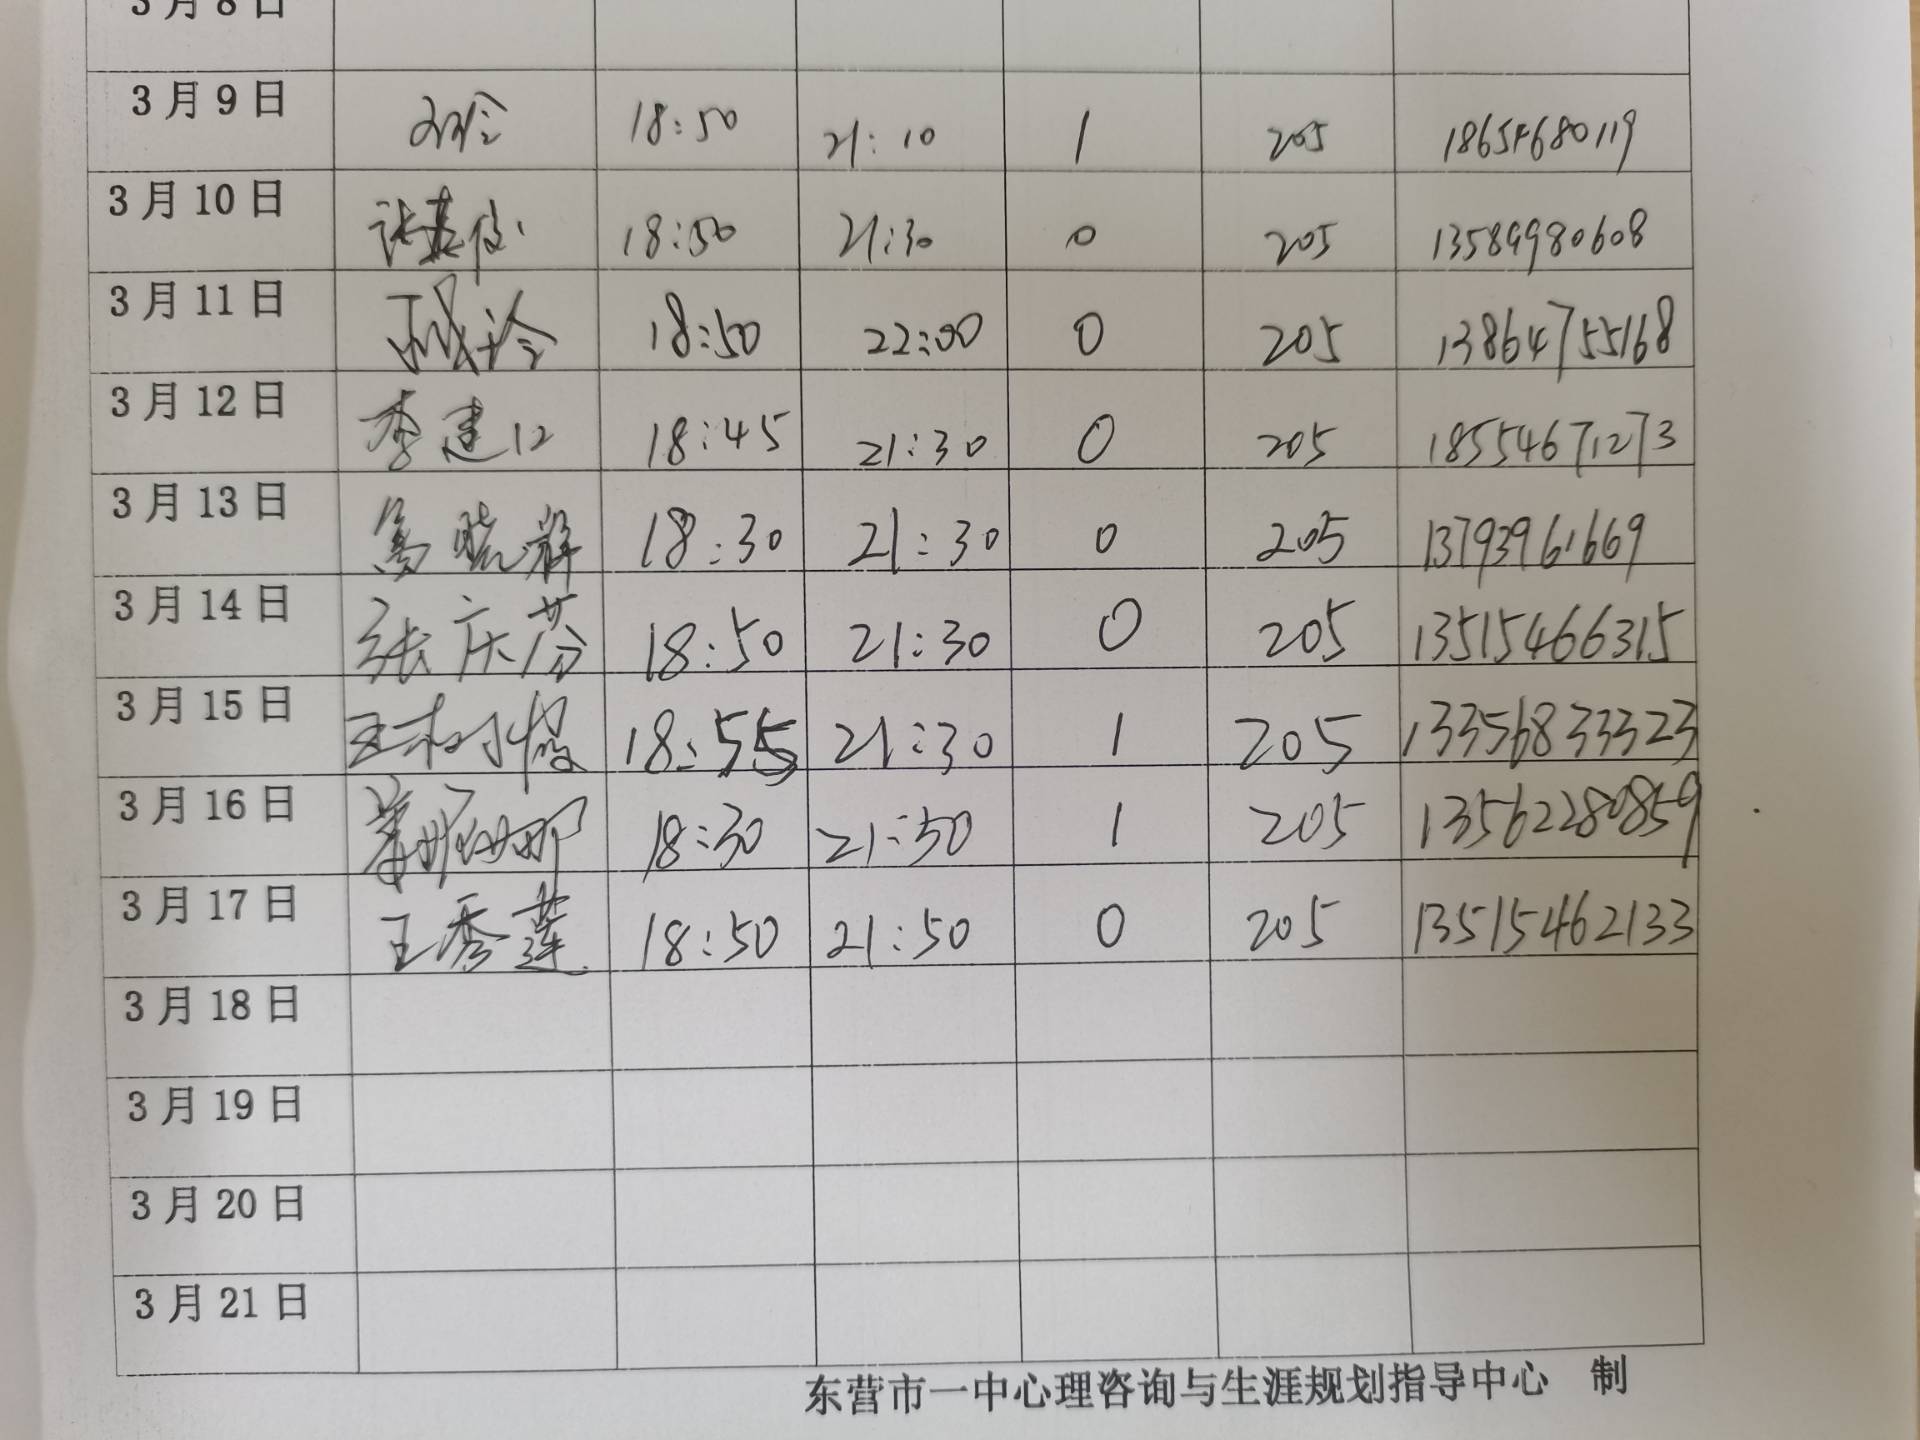 3月8日
3月9日 18:50 21:10 1 205 18654680119
3月10日 18:50 21:30 0 205 13589980608
3月11日 18:50 22:00 0 205 13864755168
3月12日 李建 18:45 21:30 0 205 18554671273
3月13日 18:30 21:30 0 205 13793961669
3月14日 张庆芬 18:50 21:30 0 205 13515466315
3月15日 18:55 21:30 1 205 13356833323
3月16日 18:30 21:50 1 205 13562280859
3月17日 王秀莲 18:50 21:50 0 205 13515462133
3月18日
3月19日
3月20日
3月21日
东营市一中心理咨询与生涯规划指导中心 制